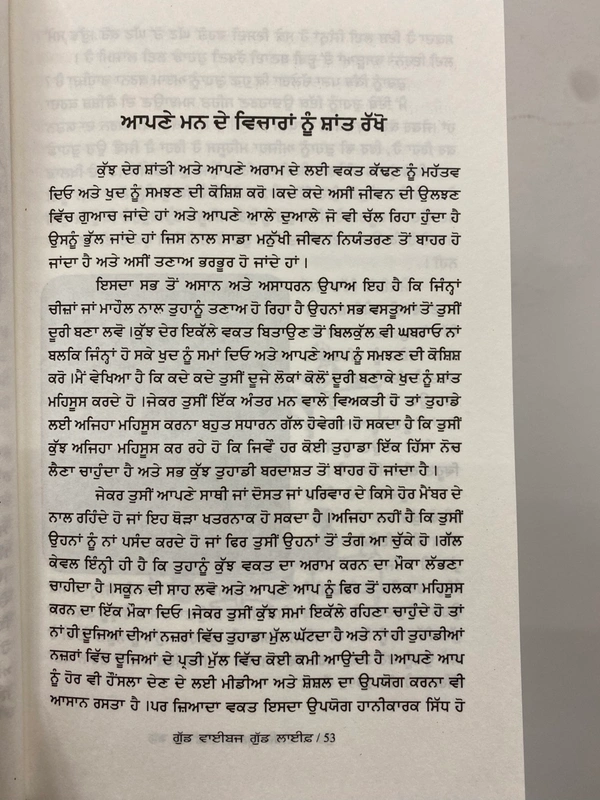 ਆਪਣੇ ਮਨ ਦੇ ਵਿਚਾਰਾਂ ਨੂੰ ਸ਼ਾਂਤ ਰੱਖੋ
ਕੁੱਝ ਦੇਰ ਸ਼ਾਂਤੀ ਅਤੇ ਆਪਣੇ ਅਰਾਮ ਦੇ ਲਈ ਵਕਤ ਕੱਢਣ ਨੂੰ ਮਹੱਤਵ
ਦਿਓ ਅਤੇ ਖੁਦ ਨੂੰ ਸਮਝਣ ਦੀ ਕੋਸ਼ਿਸ਼ ਕਰੋ ।ਕਦੇ ਕਦੇ ਅਸੀਂ ਜੀਵਨ ਦੀ ਉਲਝਣ
ਵਿੱਚ ਗੁਆਚ ਜਾਂਦੇ ਹਾਂ ਅਤੇ ਆਪਣੇ ਆਲੇ ਦੁਆਲੇ ਜੋ ਵੀ ਚੱਲ ਰਿਹਾ ਹੁੰਦਾ ਹੈ
ਉਸਨੂੰ ਭੁੱਲ ਜਾਂਦੇ ਹਾਂ ਜਿਸ ਨਾਲ ਸਾਡਾ ਮਨੁੱਖੀ ਜੀਵਨ ਨਿਯੰਤਰਣ ਤੋਂ ਬਾਹਰ ਹੋ
ਜਾਂਦਾ ਹੈ ਅਤੇ ਅਸੀਂ ਤਣਾਅ ਭਰਭੂਰ ਹੋ ਜਾਂਦੇ ਹਾਂ ।
ਇਸਦਾ ਸਭ ਤੋਂ ਅਸਾਨ ਅਤੇ ਅਸਾਧਰਨ ਉਪਾਅ ਇਹ ਹੈ ਕਿ ਜਿੰਨ੍ਹਾਂ
ਚੀਜ਼ਾਂ ਜਾਂ ਮਾਹੌਲ ਨਾਲ ਤੁਹਾਨੂੰ ਤਣਾਅ ਹੋ ਰਿਹਾ ਹੈ ਉਹਨਾਂ ਸਭ ਵਸਤੂਆਂ ਤੋਂ ਤੁਸੀਂ
ਦੂਰੀ ਬਣਾ ਲਵੋ ।ਕੁੱਝ ਦੇਰ ਇਕੱਲੇ ਵਕਤ ਬਿਤਾਉਣ ਤੋਂ ਬਿਲਕੁੱਲ ਵੀ ਘਬਰਾਓ ਨਾਂ
ਬਲਕਿ ਜਿੰਨ੍ਹਾਂ ਹੋ ਸਕੇ ਖੁਦ ਨੂੰ ਸਮਾਂ ਦਿਓ ਅਤੇ ਆਪਣੇ ਆਪ ਨੂੰ ਸਮਝਣ ਦੀ ਕੋਸ਼ਿਸ਼
ਕਰੋ ।ਮੈਂ ਵੇਖਿਆ ਹੈ ਕਿ ਕਦੇ ਕਦੇ ਤੁਸੀਂ ਦੂਜੇ ਲੋਕਾਂ ਕੋਲੋਂ ਦੂਰੀ ਬਣਾਕੇ ਖੁਦ ਨੂੰ ਸ਼ਾਂਤ
ਮਹਿਸੂਸ ਕਰਦੇ ਹੋ ।ਜੇਕਰ ਤੁਸੀਂ ਇੱਕ ਅੰਤਰ ਮਨ ਵਾਲੇ ਵਿਅਕਤੀ ਹੋ ਤਾਂ ਤੁਹਾਡੇ
ਲਈ ਅਜਿਹਾ ਮਹਿਸੂਸ ਕਰਨਾ ਬਹੁਤ ਸਧਾਰਨ ਗੱਲ ਹੋਵੇਗੀ ।ਹੋ ਸਕਦਾ ਹੈ ਕਿ ਤੁਸੀਂ
ਕੁੱਝ ਅਜਿਹਾ ਮਹਿਸੂਸ ਕਰ ਰਹੇ ਹੋ ਕਿ ਜਿਵੇਂ ਹਰ ਕੋਈ ਤੁਹਾਡਾ ਇੱਕ ਹਿੱਸਾ ਨੋਚ
ਲੈਣਾ ਚਾਹੁੰਦਾ ਹੈ ਅਤੇ ਸਭ ਕੁੱਝ ਤੁਹਾਡੀ ਬਰਦਾਸ਼ਤ ਤੋਂ ਬਾਹਰ ਹੋ ਜਾਂਦਾ ਹੈ ।
ਜੇਕਰ ਤੁਸੀਂ ਆਪਣੇ ਸਾਥੀ ਜਾਂ ਦੋਸਤ ਜਾਂ ਪਰਿਵਾਰ ਦੇ ਕਿਸੇ ਹੋਰ ਮੈਂਬਰ ਦੇ
ਨਾਲ ਰਹਿੰਦੇ ਹੋ ਜਾਂ ਇਹ ਥੋੜਾ ਖਤਰਨਾਕ ਹੋ ਸਕਦਾ ਹੈ ।ਅਜਿਹਾ ਨਹੀਂ ਹੈ ਕਿ ਤੁਸੀਂ
ਉਹਨਾਂ ਨੂੰ ਨਾਂ ਪਸੰਦ ਕਰਦੇ ਹੋ ਜਾਂ ਫਿਰ ਤੁਸੀਂ ਉਹਨਾਂ ਤੋਂ ਤੰਗ ਆ ਚੁੱਕੇ ਹੋ ।ਗੱਲ
ਕੇਵਲ ਇੰਨ੍ਹੀ ਹੀ ਹੈ ਕਿ ਤੁਹਾਨੂੰ ਕੁੱਝ ਵਕਤ ਦਾ ਅਰਾਮ ਕਰਨ ਦਾ ਮੌਕਾ ਲੱਭਣਾ
ਚਾਹੀਦਾ ਹੈ ।ਸਕੂਨ ਦੀ ਸਾਹ ਲਵੋ ਅਤੇ ਆਪਣੇ ਆਪ ਨੂੰ ਫਿਰ ਤੋਂ ਹਲਕਾ ਮਹਿਸੂਸ
ਕਰਨ ਦਾ ਇੱਕ ਮੌਕਾ ਦਿਓ ।ਜੇਕਰ ਤੁਸੀਂ ਕੁੱਝ ਸਮਾਂ ਇਕੱਲੇ ਰਹਿਣਾ ਚਾਹੁੰਦੇ ਹੋ ਤਾਂ
ਨਾਂ ਹੀ ਦੂਜਿਆਂ ਦੀਆਂ ਨਜ਼ਰਾਂ ਵਿੱਚ ਤੁਹਾਡਾ ਮੁੱਲ ਘੱਟਦਾ ਹੈ ਅਤੇ ਨਾਂ ਹੀ ਤੁਹਾਡੀਆਂ
ਨਜ਼ਰਾਂ ਵਿੱਚ ਦੂਜਿਆਂ ਦੇ ਪ੍ਰਤੀ ਮੁੱਲ ਵਿੱਚ ਕੋਈ ਕਮੀ ਆਉਂਦੀ ਹੈ ।ਆਪਣੇ ਆਪ
ਨੂੰ ਹੋਰ ਵੀ ਹੌਂਸਲਾ ਦੇਣ ਦੇ ਲਈ ਮੀਡੀਆ ਅਤੇ ਸ਼ੋਸ਼ਲ ਦਾ ਉਪਯੋਗ ਕਰਨਾ ਵੀ
ਆਸਾਨ ਰਸਤਾ ਹੈ ।ਪਰ ਜ਼ਿਆਦਾ ਵਕਤ ਇਸਦਾ ਉਪਯੋਗ ਹਾਨੀਕਾਰਕ ਸਿੱਧ ਹੋ
ਗੁੱਡ ਵਾਈਬਜ ਗੁੱਡ ਲਾਈਫ਼ / 53